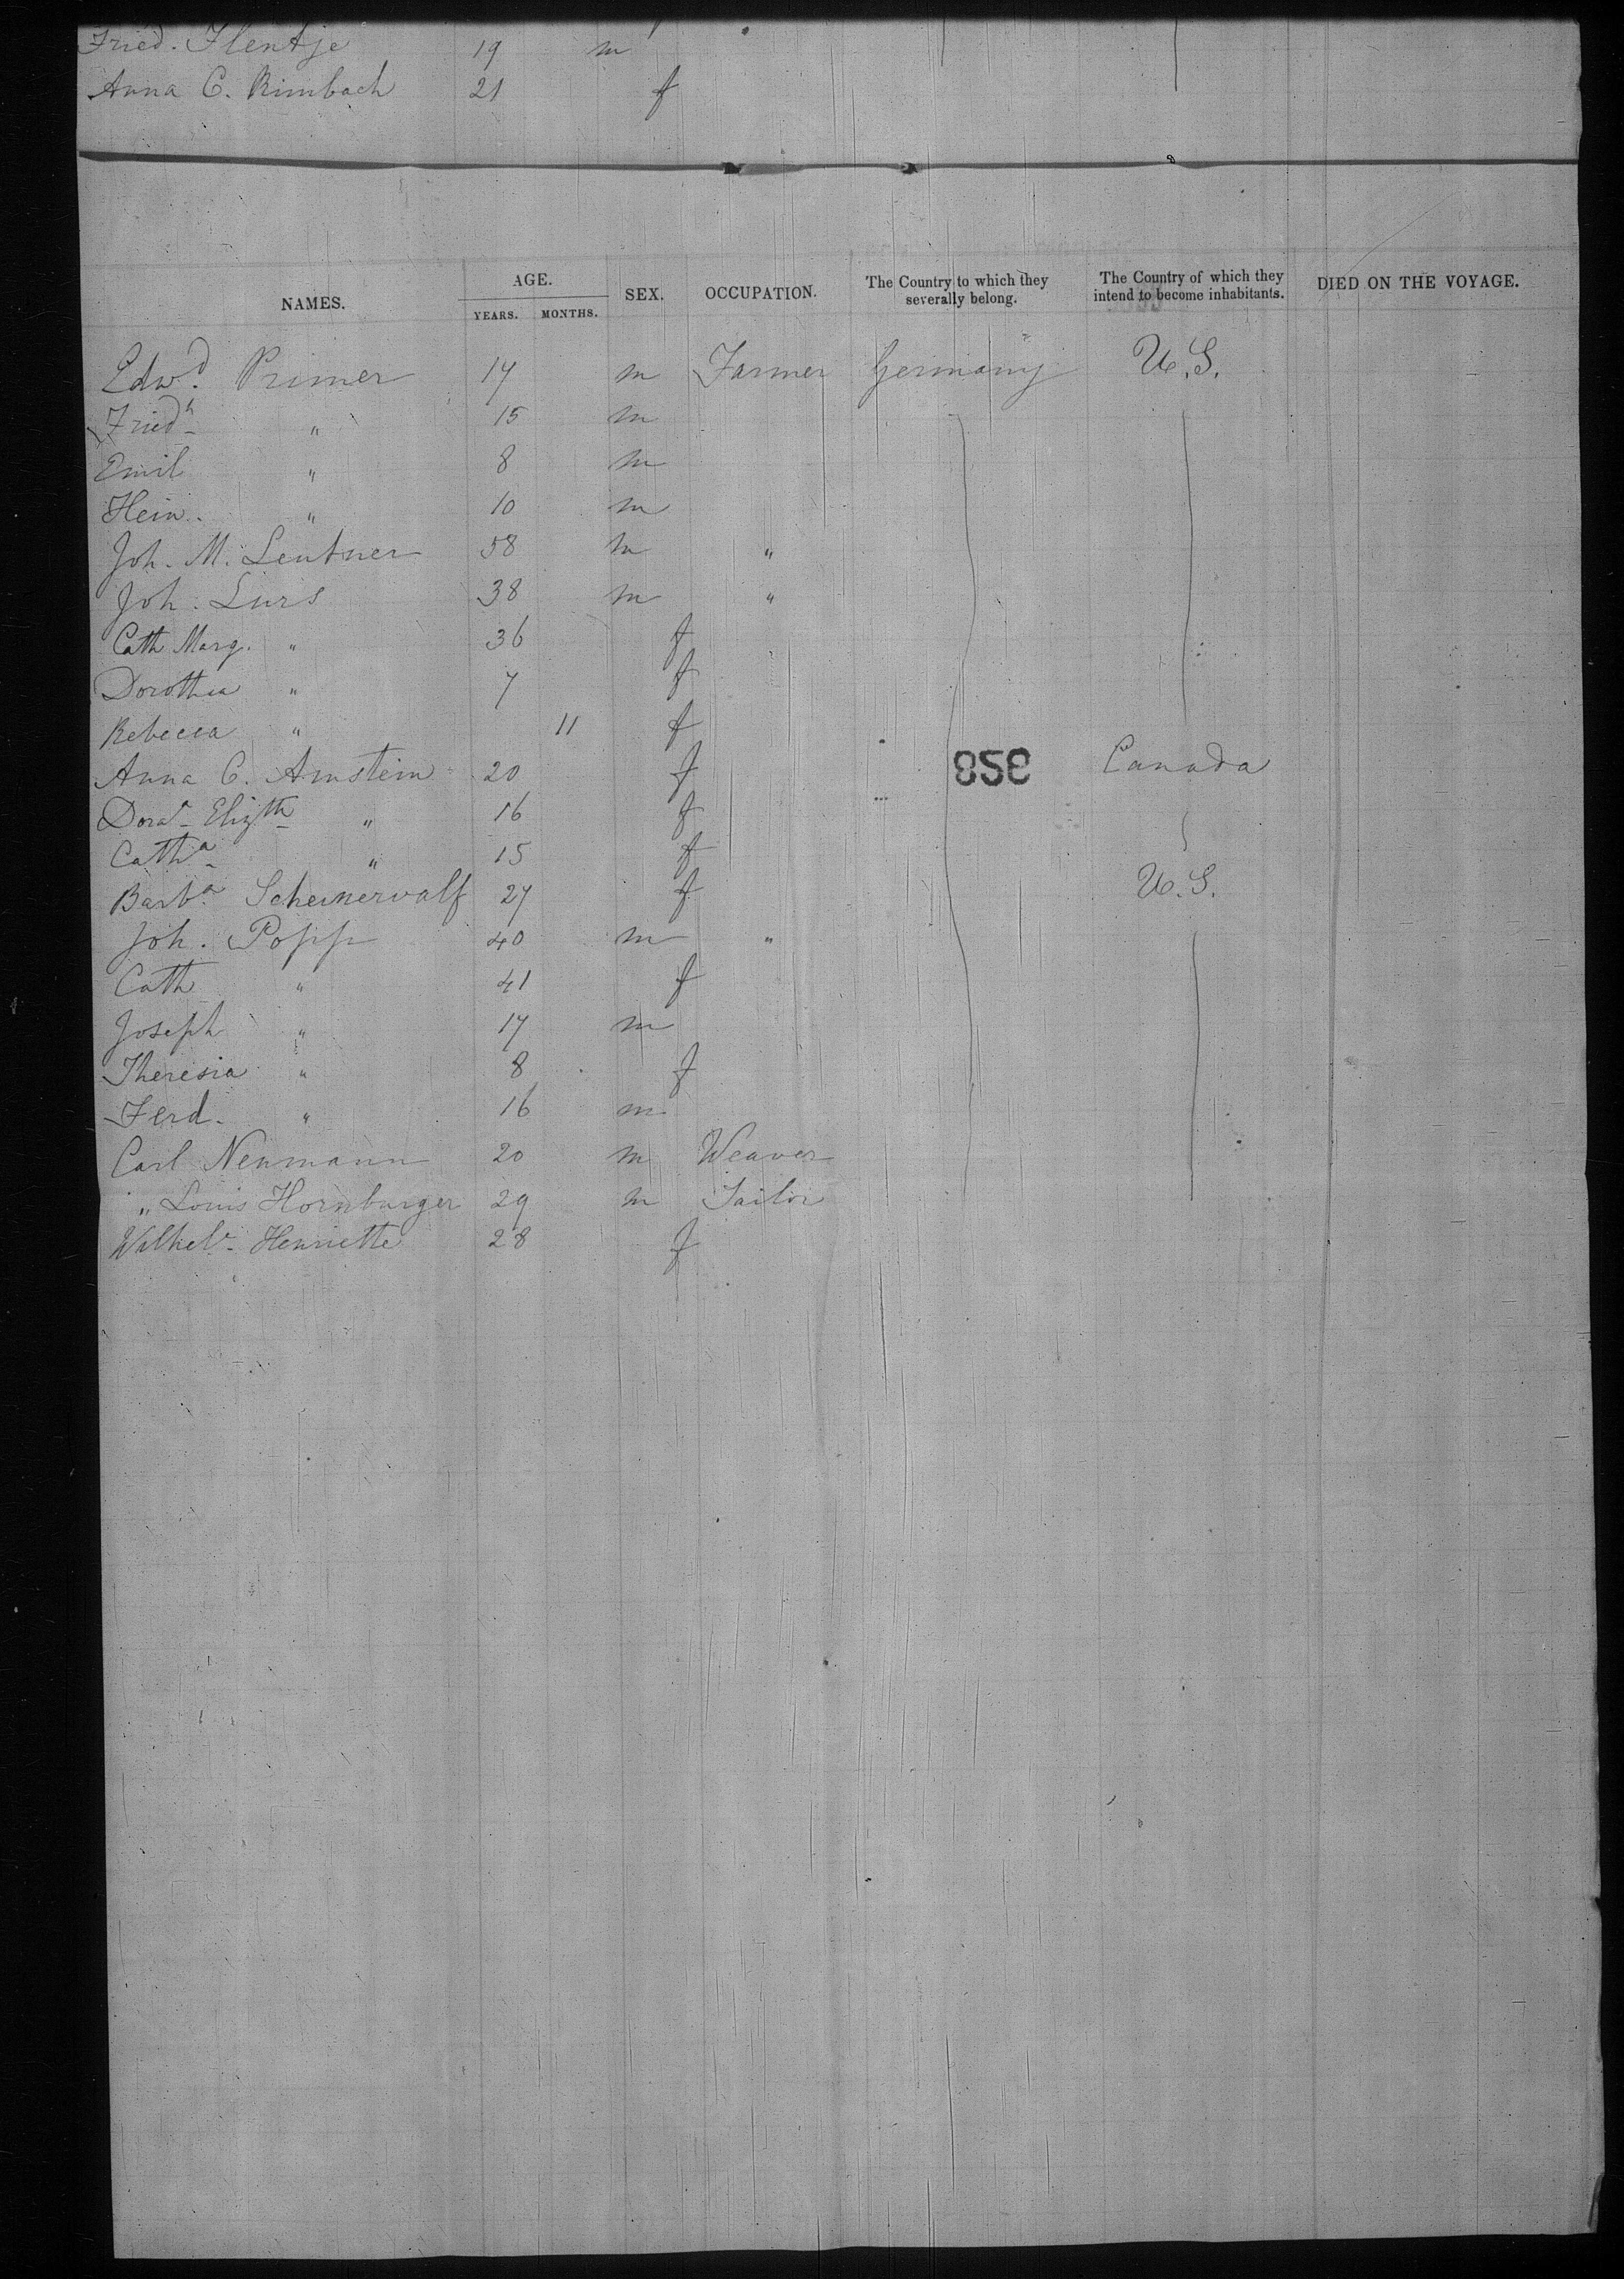 Fried. Flentje 19 m
Anna C. Rimbach 21 f
8
NAMES. AGE. YEARS. MONTHS. SEX. OCCUPATION. The Country to which they severally belong. The Country of which they intend to become inhabitants. DIED ON THE VOYAGE.
Edwd. Primer 17 m Farmer Germany U.S.
Friedh " 15 m
Emil " 8 m
Hein. " 10 m
Joh. M. Lentner 58 m "
Joh. Lürs 38 m "
Cath Marg. " 36 f
Dorothea " 7 f
Rebecca " 11 f
Anna C. Arnstein 20 f 858 Canada
Dora Elizth " 16 f
Catha " 15 f
Barba 27 f U.S.
Joh. Popp 40 m "
Cath " 41 f
Joseph " 17 m
Theresia " 8 f
Ferd. " 16 m
Carl Neumann 20 m Weaver
" Louis Hornburger 29 m Tailor
Henriette 28 f